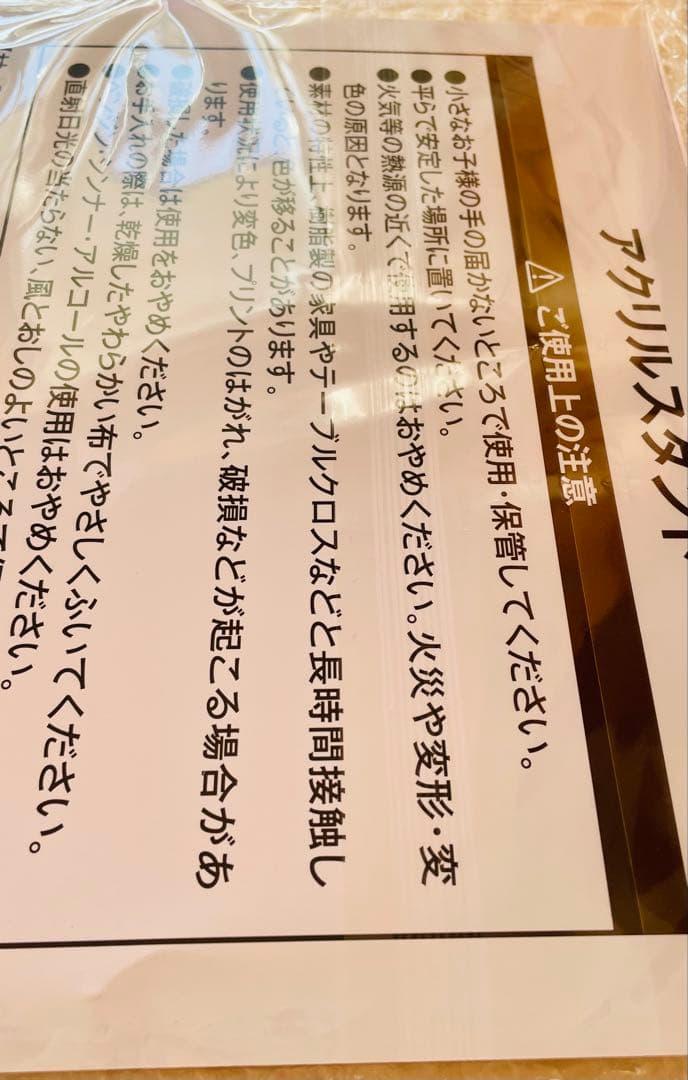 アクリルスタンド
⚠ご使用上の注意
●小さなお子様の手の届かないところで使用・保管してください。
●平らで安定した場所に置いてください。
●火気等の熱源の近くで使用するのはおやめください。火災や変形・変
色の原因となります。
●素材の特性上、樹脂製の家具やテーブルクロスなどと長時間接触し
色が移ることがあります。
●使用状況により変色、プリントのはがれ、破損などが起こる場合があ
ります。
●破損した場合は使用をおやめください。
●お手入れの際は、乾燥したやわらかい布でやさしくふいてください。
シンナー・アルコールの使用はおやめください。
●直射日光の当たらない、風とおしのよいところで